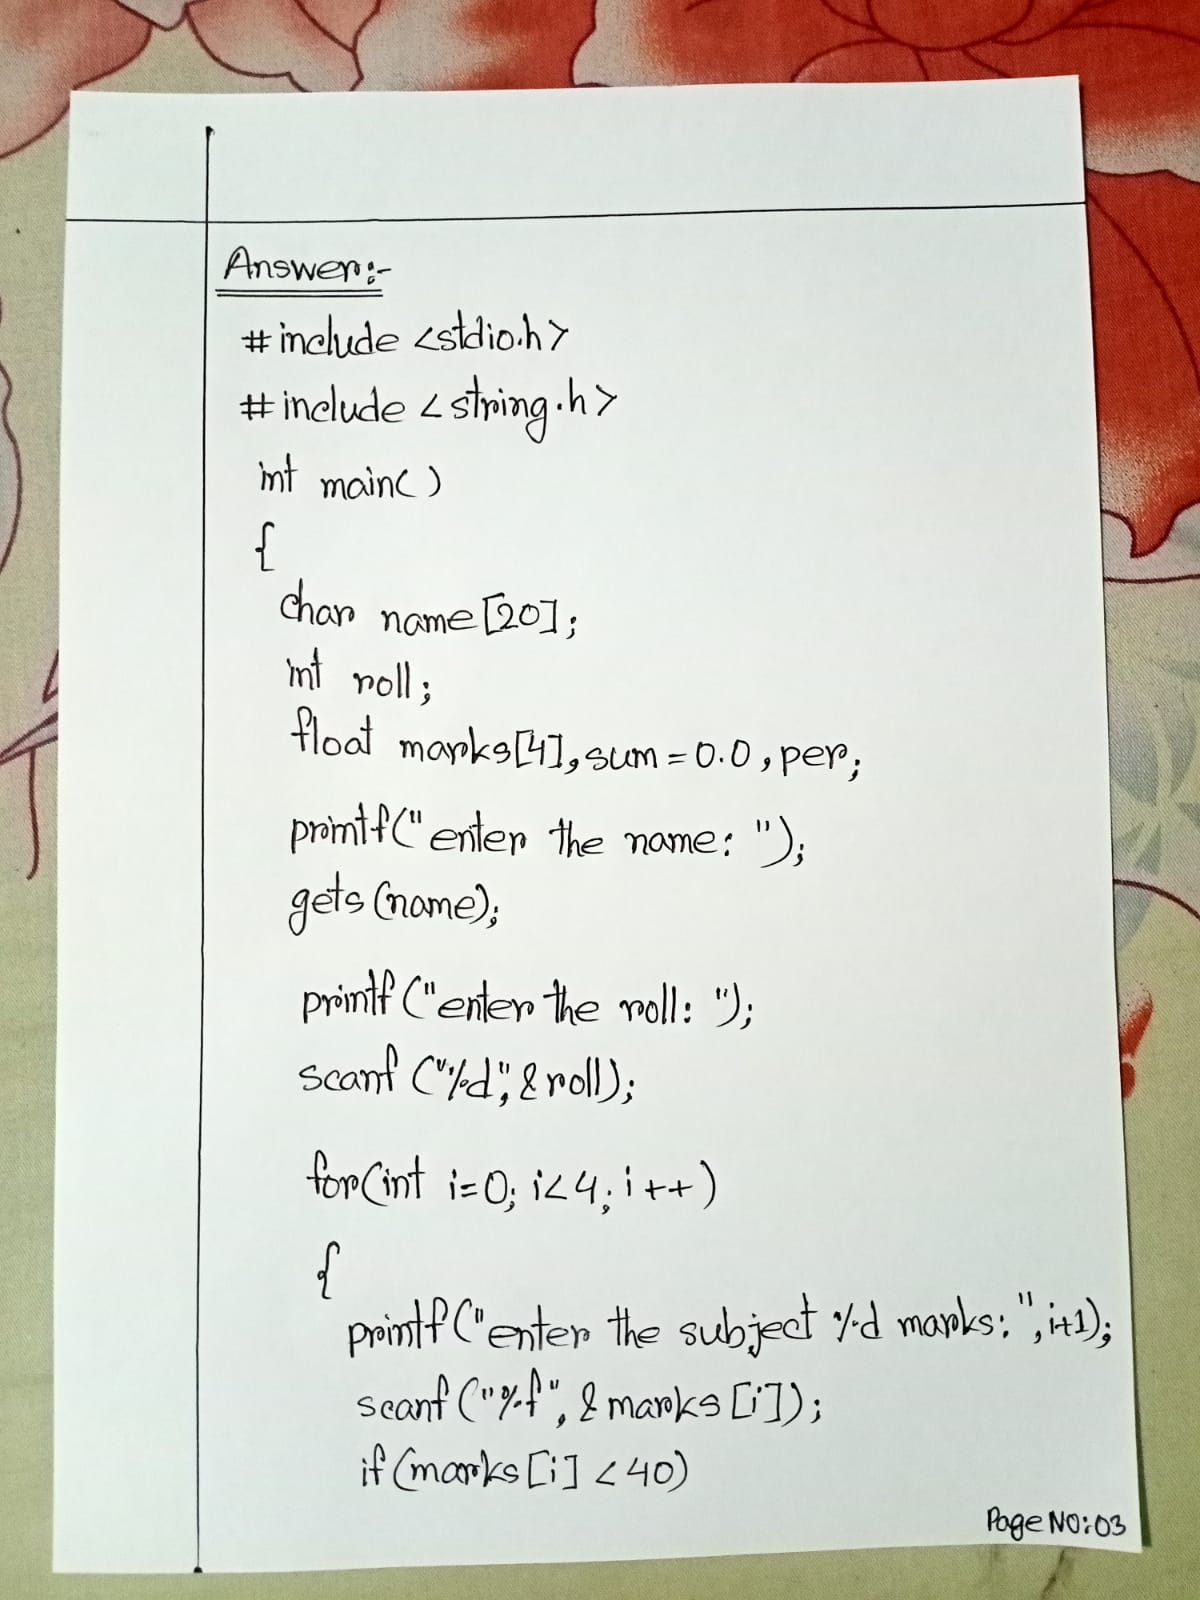 Answer:-
#include <stdio.h>
#include <string.h>
int main()
{
char name[20];
int roll;
float marks[4], sum=0.0, per;
printf("enter the name: ");
gets(name);
printf("enter the roll: ");
scanf("%d", &roll);
for(int i=0; i<4; i++)
{
printf("enter the subject %d marks: ", i+1);
scanf("%f", &marks[i]);
if(marks[i] <40)
Page NO:03